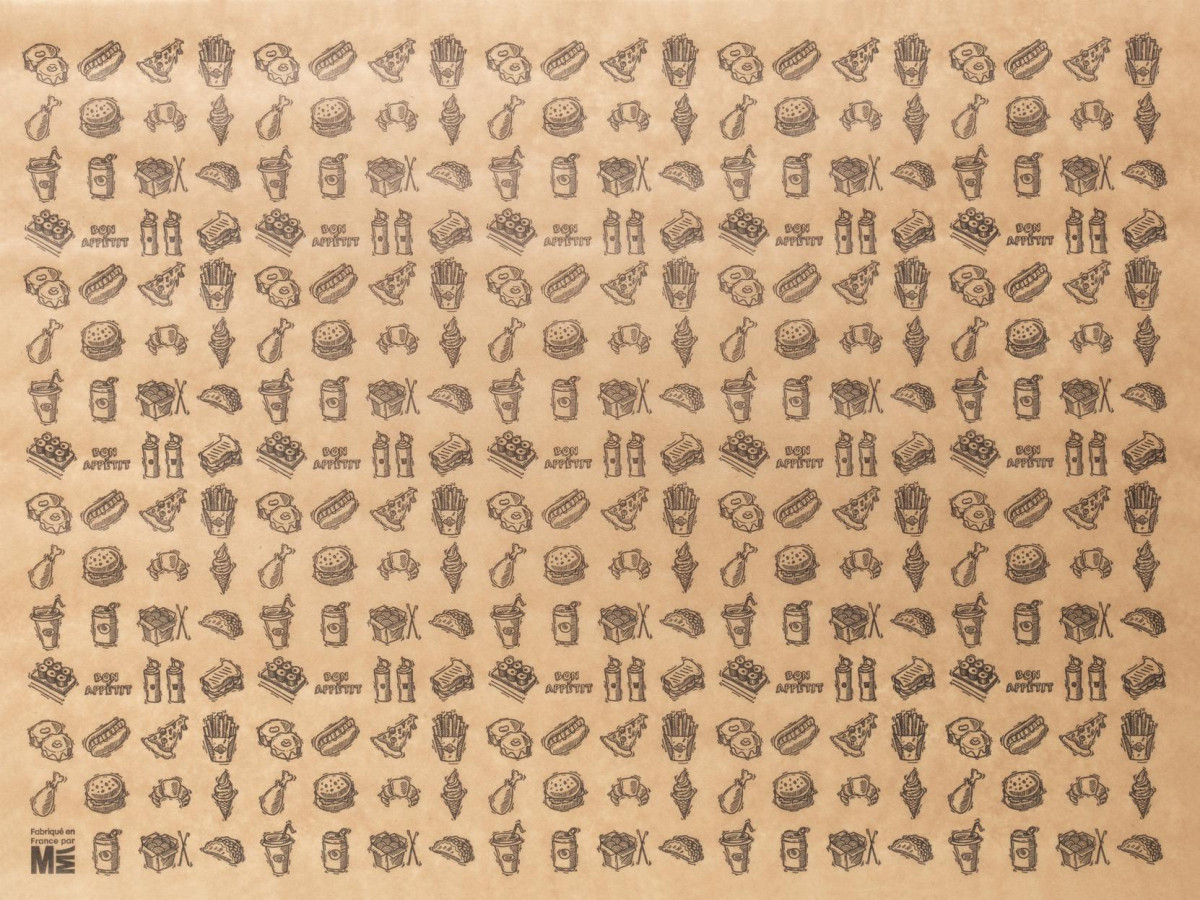 BON
APPÉTIT
BON
APPÉTIT
BON
APPÉTIT
BON
APPÉTIT
BON
APPÉTIT
BON
APPÉTIT
BON
APPÉTIT
BON
APPÉTIT
BON
APPÉTIT
BON
APPÉTIT
BON
APPÉTIT
BON
APPÉTIT
BON
APPÉTIT
BON
APPÉTIT
BON
APPÉTIT
Fabriqué en
France par